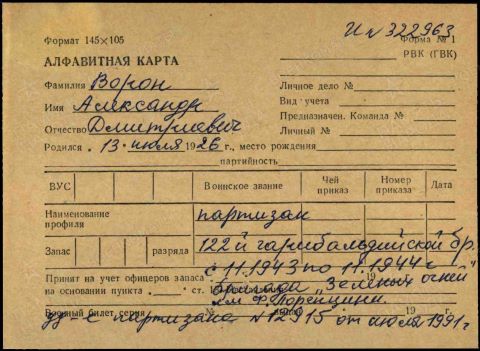 Формат 145×105
И№322963
Форма № 1
РВК (ГВК)
АЛФАВИТНАЯ КАРТА
Фамилия Ворон
Имя Александр
Отчество Дмитриевич
Родился 13 июля 1926 г., место рождения
Личное дело №
Вид учета
Предназначен. Команда №
Личный №
партийность
ВУС
Воинское звание
Чей приказ
Номер приказа
Дата
Наименование профиля
партизан
Запас
разряда
122й гарибальдийской бр.
с 11.1943 по 11.1944г
Принят на учет офицеров запаса 19
на основании пункта ст. бригада „Зеленых огней"
им Ф. Лоренцини
Военный билет серия № выдан 19
уд-е партизана №12915 от июля 1991г